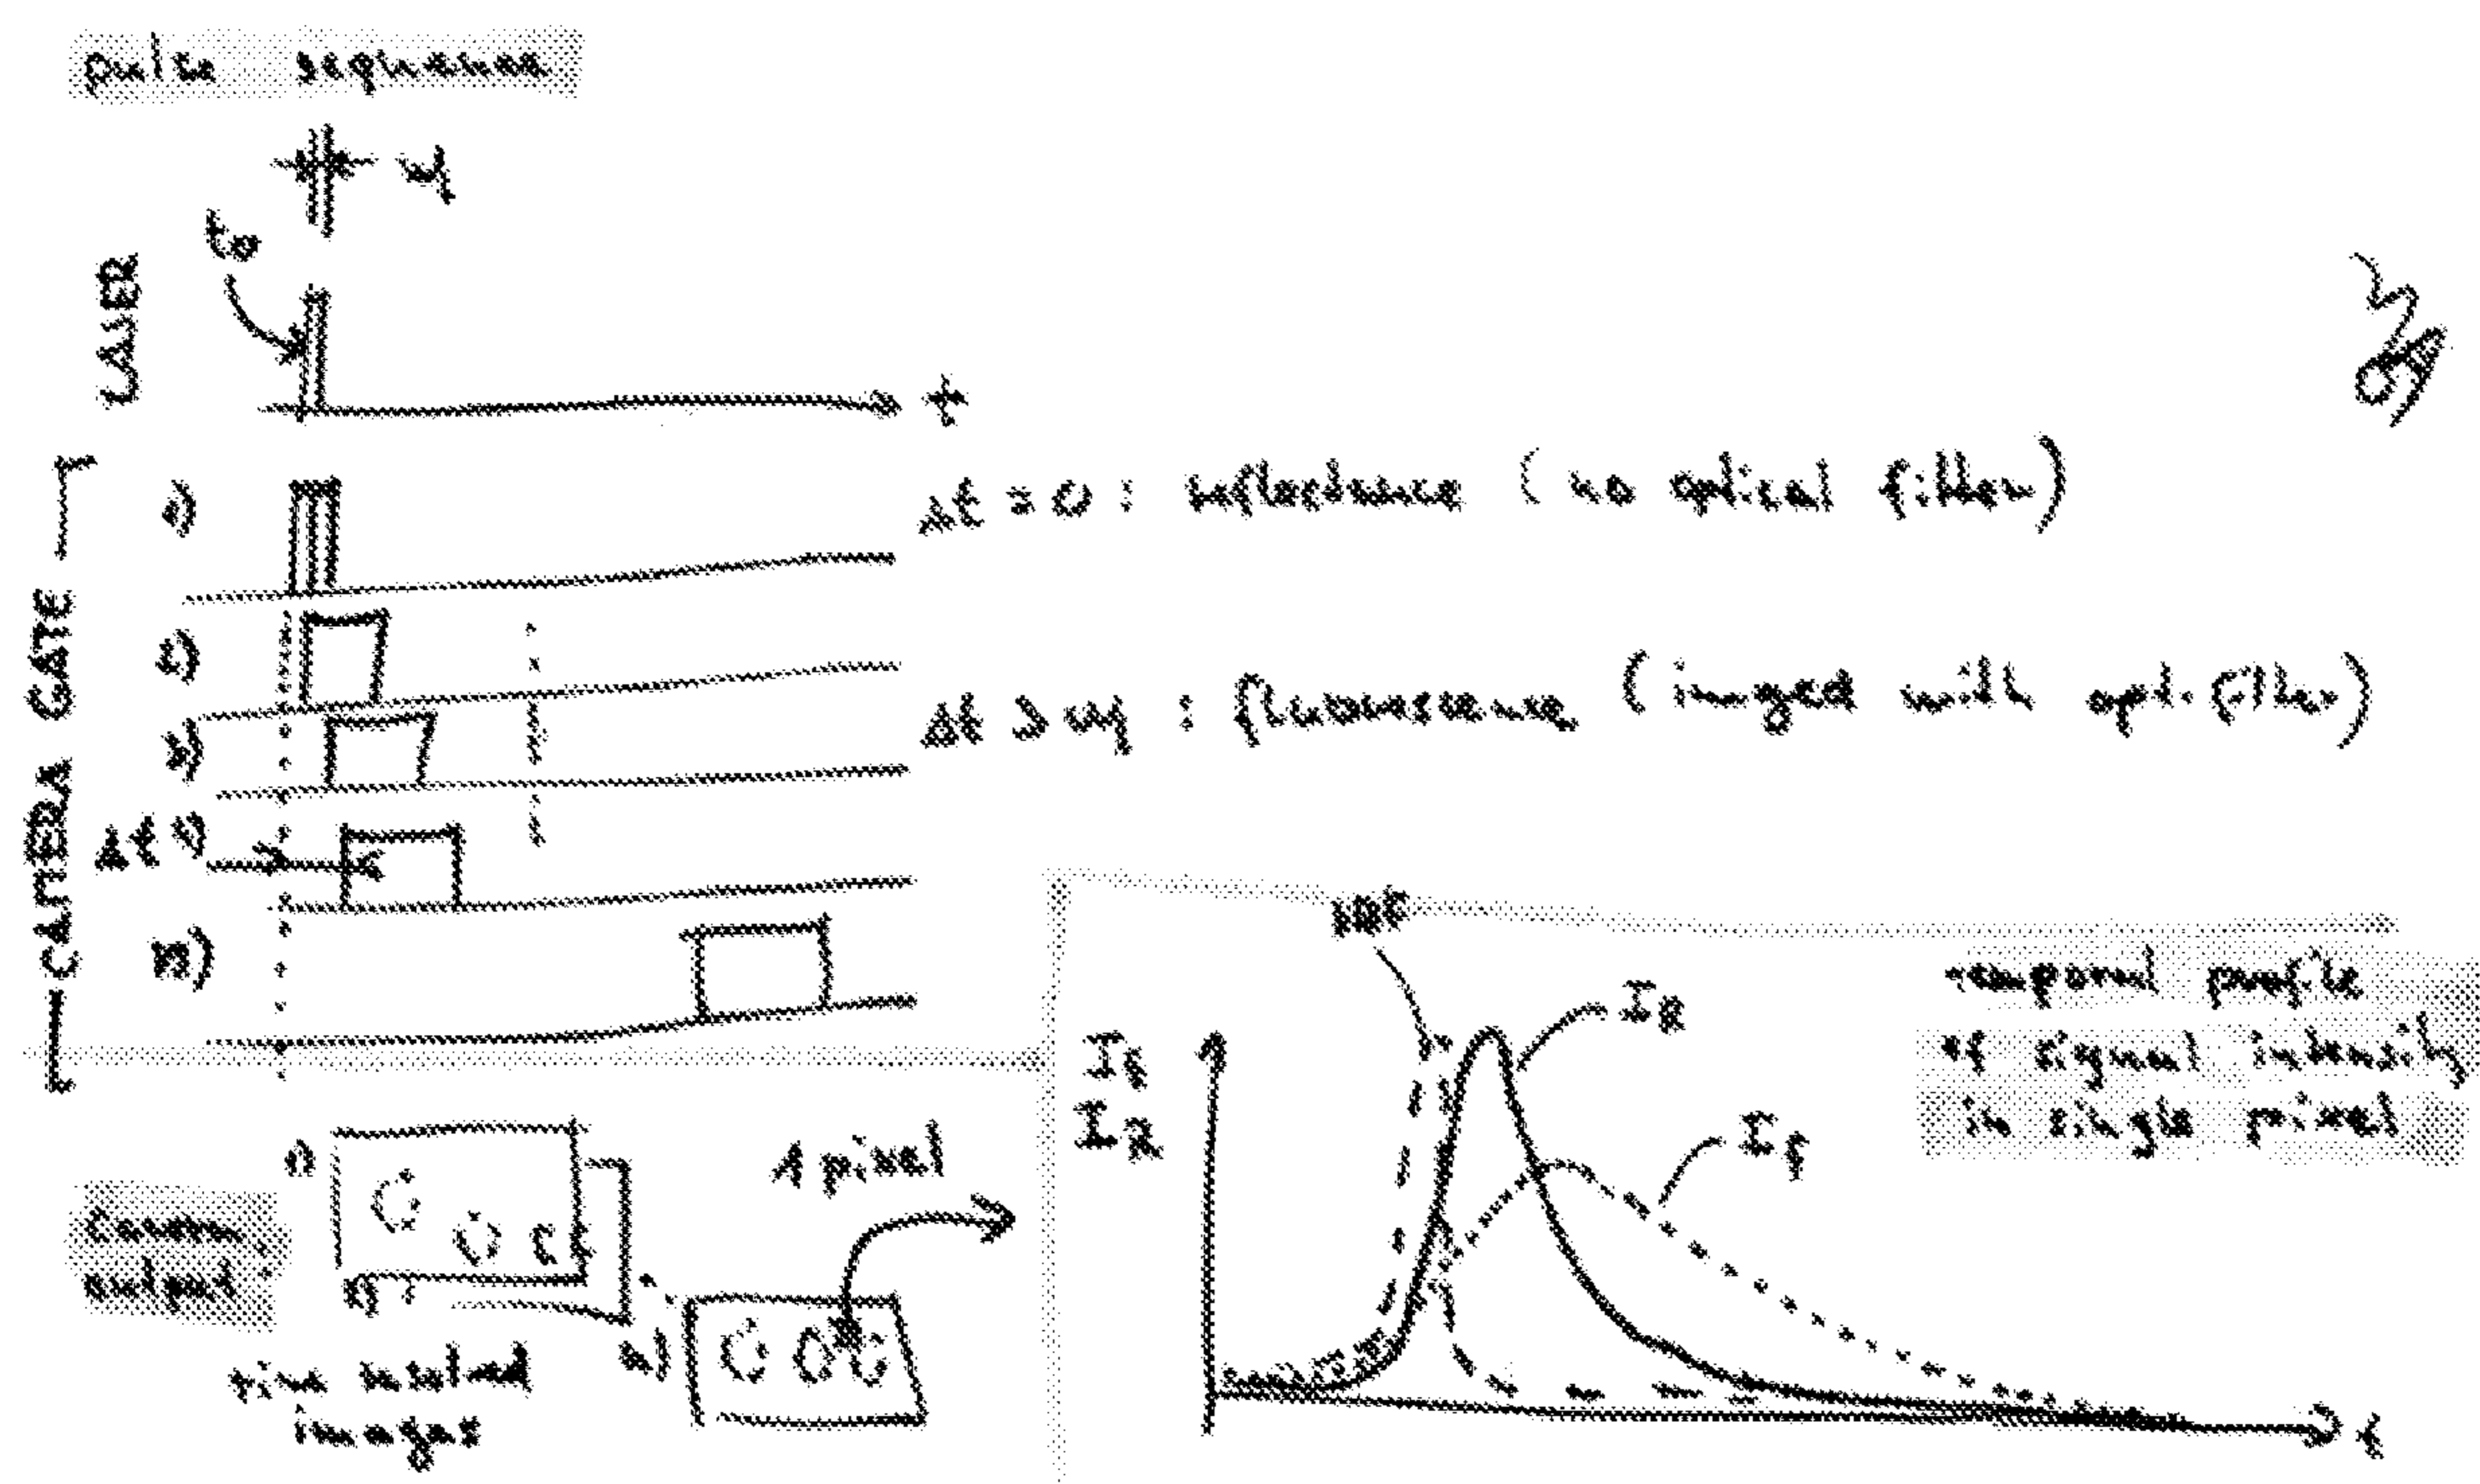 pulse sequence
t₀
LASER
t
CAMERA GATE
Δt = 0 : reflectance (no optical filter)
: fluorescence (imaged with opt. filter)
Δt
IRF
I_R
I_f
I_f
I_R
t
temporal profile
of signal intensity
in single pixel
1 pixel
camera
output
time resolved
images